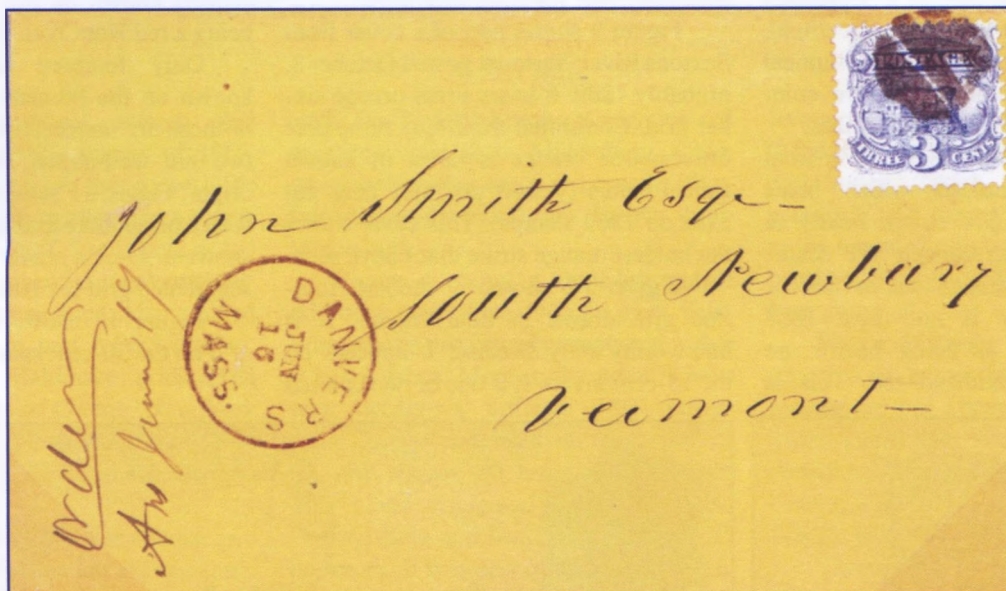 POSTAGE
THREE 3 CENTS
John Smith Esqr
South Newbury
Vermont
DANVERS
JUN
16
MASS.
Order
Ans June 19